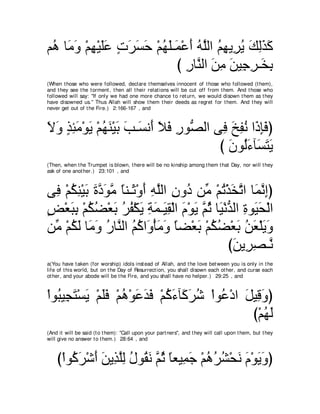 كَذَٲلِكَ يُرِيهِمُ اللَّهُ أَعْمَـٰلَهُمْ حَسَرَٲتٍ عَلَيْهِمْ وَمَا هُم
بِخَـٰرِجِينَ مِنَ النَّارِ )
(When those who were followed, declare themselves innocent of those who followed (them), and they see the torment, then all their relations will be cut off from them. And those who followed will say: "If only we had one more chance to return, we would disown them as they have disowned us." Thus Allah will show them their deeds as regret for them. And they will never get out of the Fire.) 2:166-167 , and
(فَإِذَا نُفِخَ فِى الصُّورِ فَلاَ أَنسَـبَ بَيْنَهُمْ يَوْمَئِذٍ وَلاَ
يَتَسَآءَلُونَ )
(Then, when the Trumpet is blown, there will be no kinship among them that Day, nor will they ask of one another.) 23:101 , and
(وَإِنَّمَا اتَّخَذْتُمْ مِّن دُونِ اللَّهِ أَوْثَـناً مَّوَدَّةَ بَيْنِكُمْ فِى
الْحَيَوةِ الدُّنْيَا ثُمَّ يَوْمَ الْقِيَـمَةِ يَكْفُرُ بَعْضُكُمْ بِبَعْضٍ
وَيَلْعَنُ بَعْضُكُمْ بَعْضاً وَمَأْوَاكُمُ النَّارُ وَمَا لَكُمْ مِّن
نَّـصِرِينَ)
(You have taken (for worship) idols instead of Allah, and the love between you is only in the life of this world, but on the Day of Resurrection, you shall disown each other, and curse each other, and your abode will be the Fire, and you shall have no helper.) 29:25 , and
(وَقِيلَ ادْعُواْ شُرَكَآءَكُمْ فَدَعَوْهُمْ فَلَمْ يَسْتَجِيبُواْ
لَهُمْ)
(And it will be said (to them): "Call upon your partners", and they will call upon them, but they will give no answer to them.) 28:64 , and
(وَيَوْمَ نَحْشُرُهُمْ جَمِيعاً ثُمَّ نَقُولُ لِلَّذِينَ أَشْرَكُواْ)